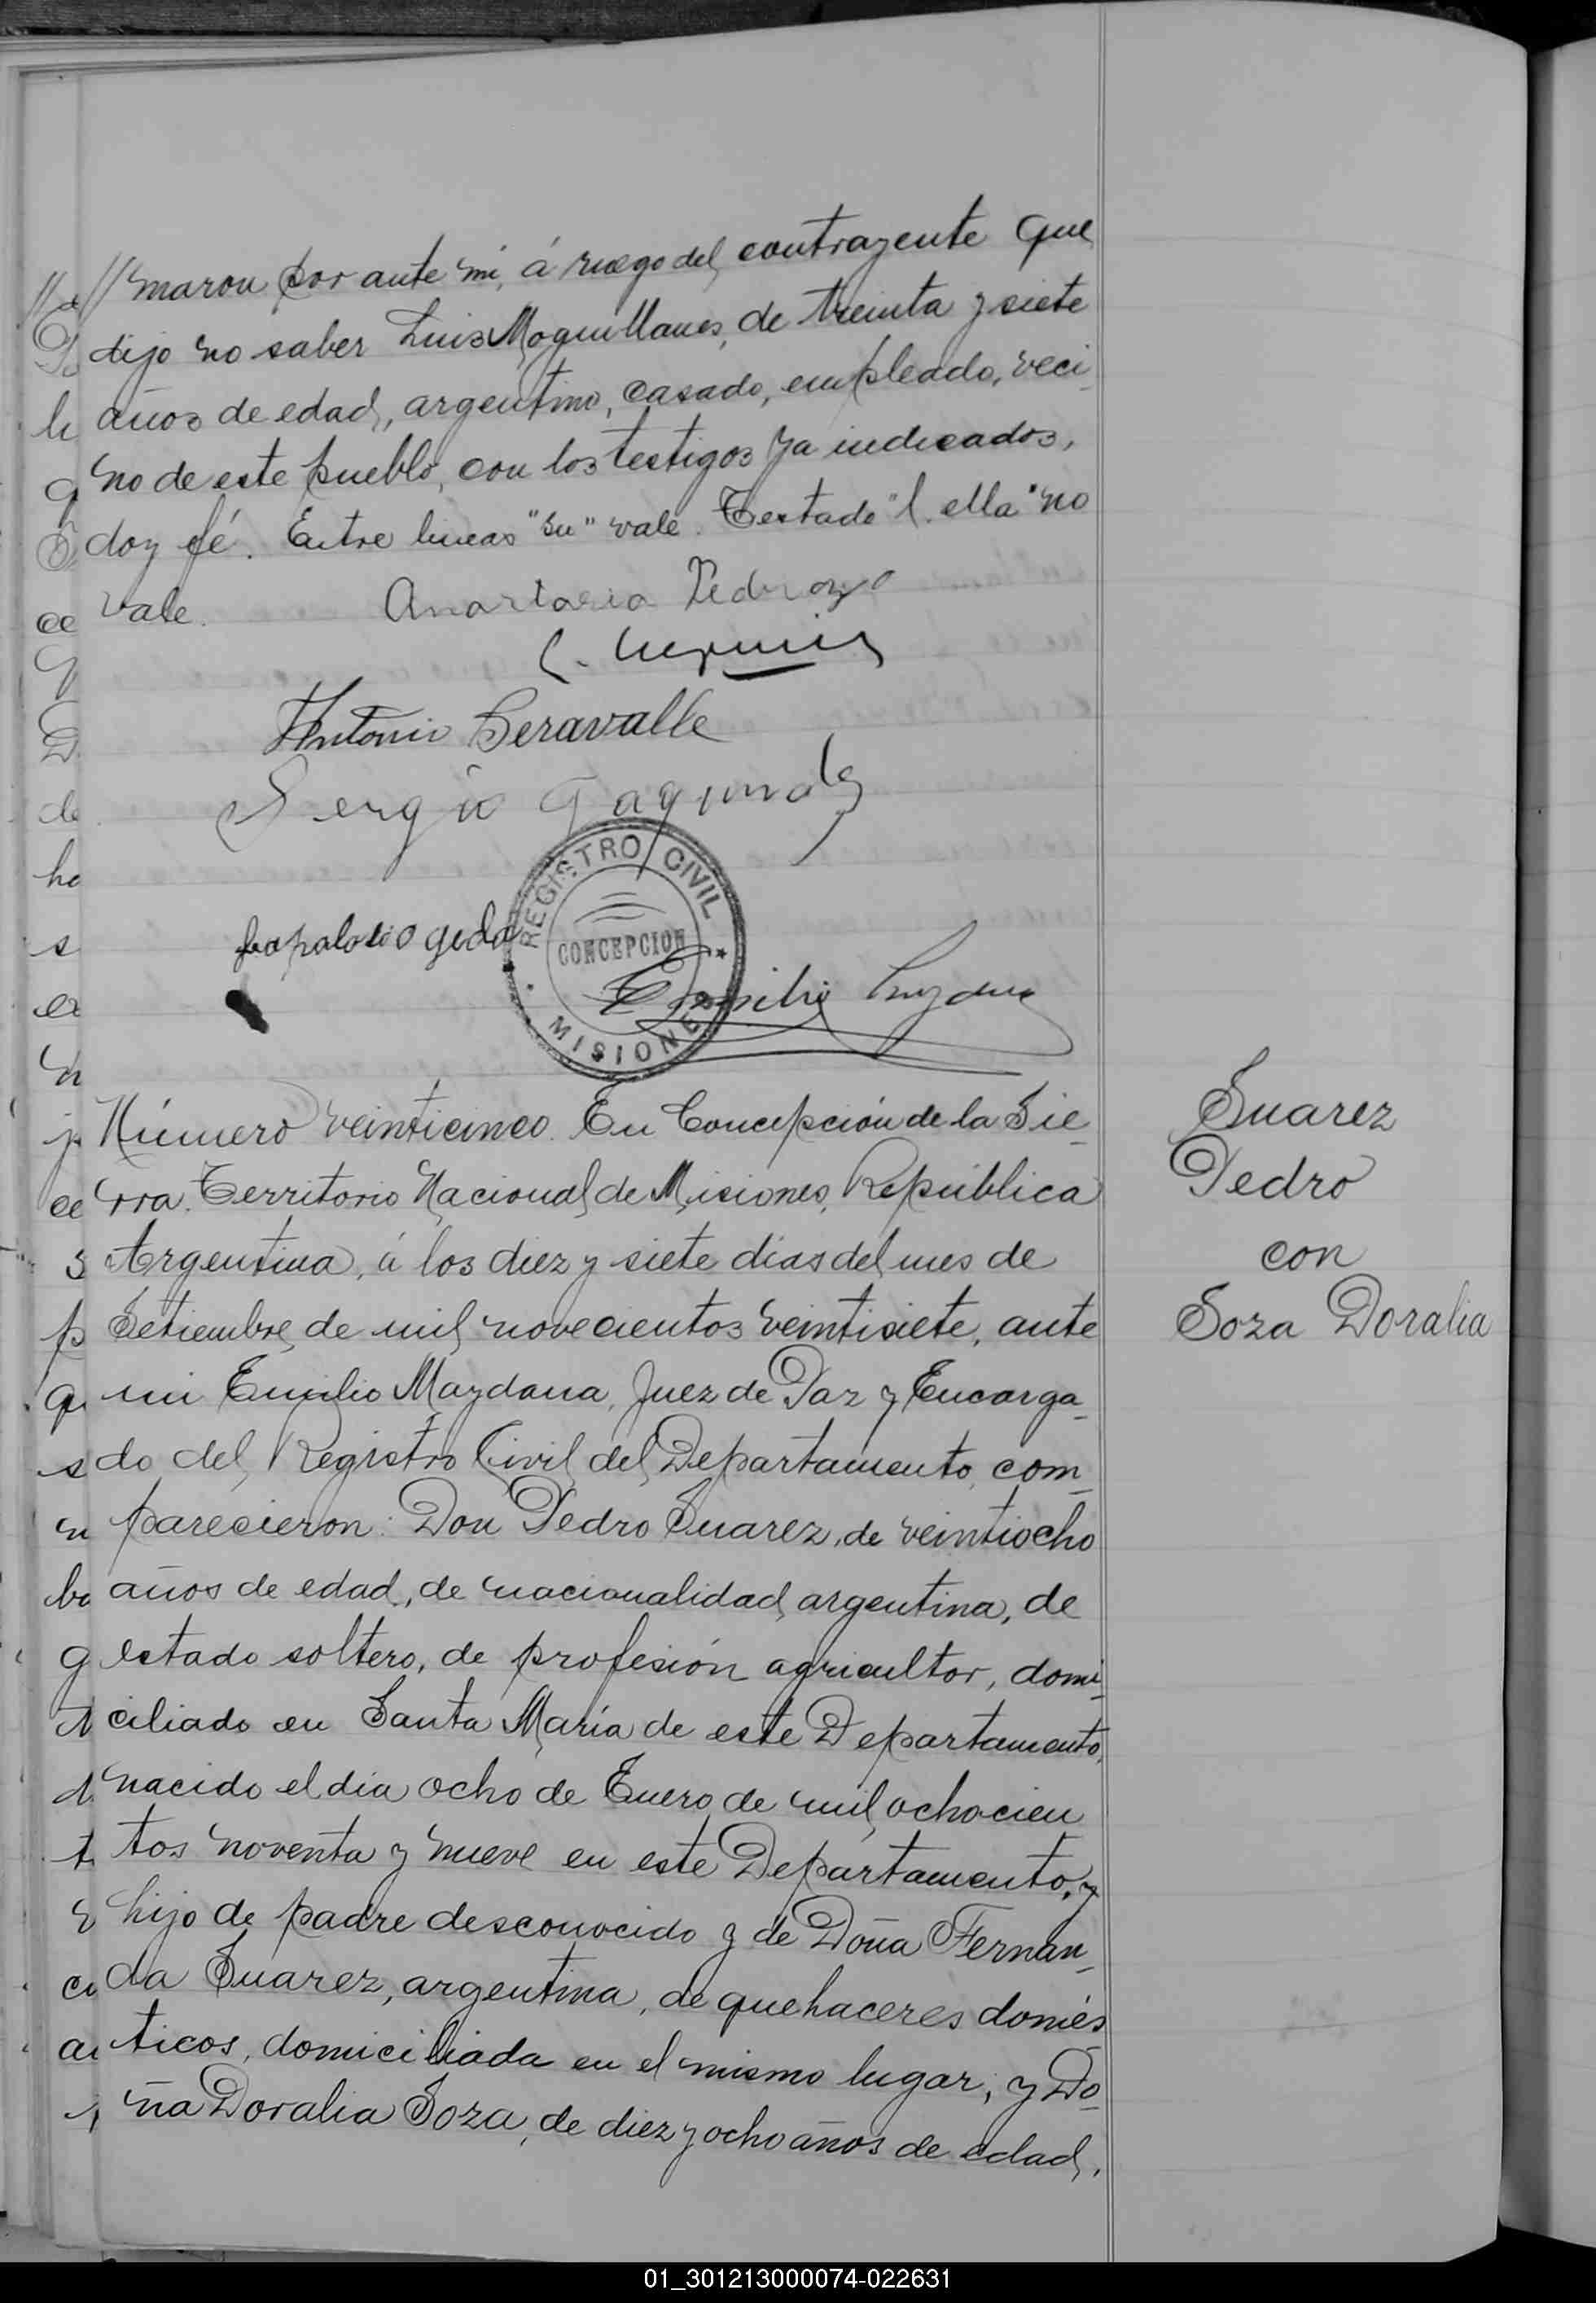 // maron por ante mi, á ruego del contrayente que
dijo no saber Luis Moguillanes, de treinta y siete
años de edad, argentino, casado, empleado, veci-
no de este pueblo, con los testigos ya indicados,
doy fé. Entre lineas "su" vale. Testado "l. ella" no
vale.
Antonio Seravalle
Sergio
REGISTRO CIVIL
CONCEPCION
MISIONES
Emilio
Número veinticinco. En Concepción de la Sie-
rra. Territorio Nacional de Misiones, República
Argentina, á los diez y siete dias del mes de
Setiembre de mil novecientos veintisiete, ante
mi Emilio Maydana, Juez de Paz y Encarga-
do del Registro Civil del Departamento, com-
parecieron: Don Pedro Suarez, de veintiocho
años de edad, de nacionalidad argentina, de
estado soltero, de profesión agricultor, domi-
ciliado en Santa María de este Departamento,
nacido el día ocho de Enero de mil ochocien
tos noventa y nueve en este Departamento, y
hijo de padre desconocido y de Doña Fernan-
da Suarez, argentina, de quehaceres domés
ticos, domiciliada en el mismo lugar; y Do-
ña Doralia Soza, de diez y ocho años de edad,
Suarez
Pedro
con
Soza Doralia
01_301213000074-022631